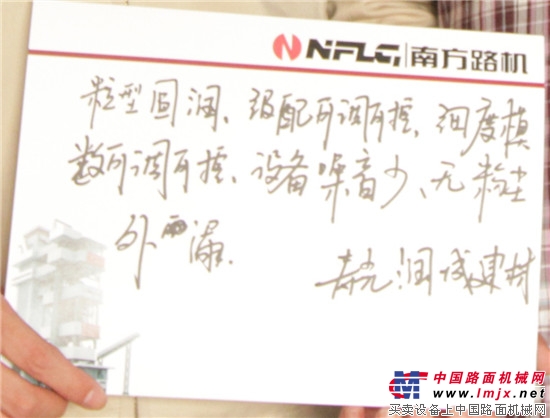 NFLG 南方路机
粒型圆润、级配可调可控、细度模
数可调可控、设备噪音少、无粉尘
外漏.
寿光润成建材
中国路面机械网
www.lmjx.net
买卖设备上中国路面机械网